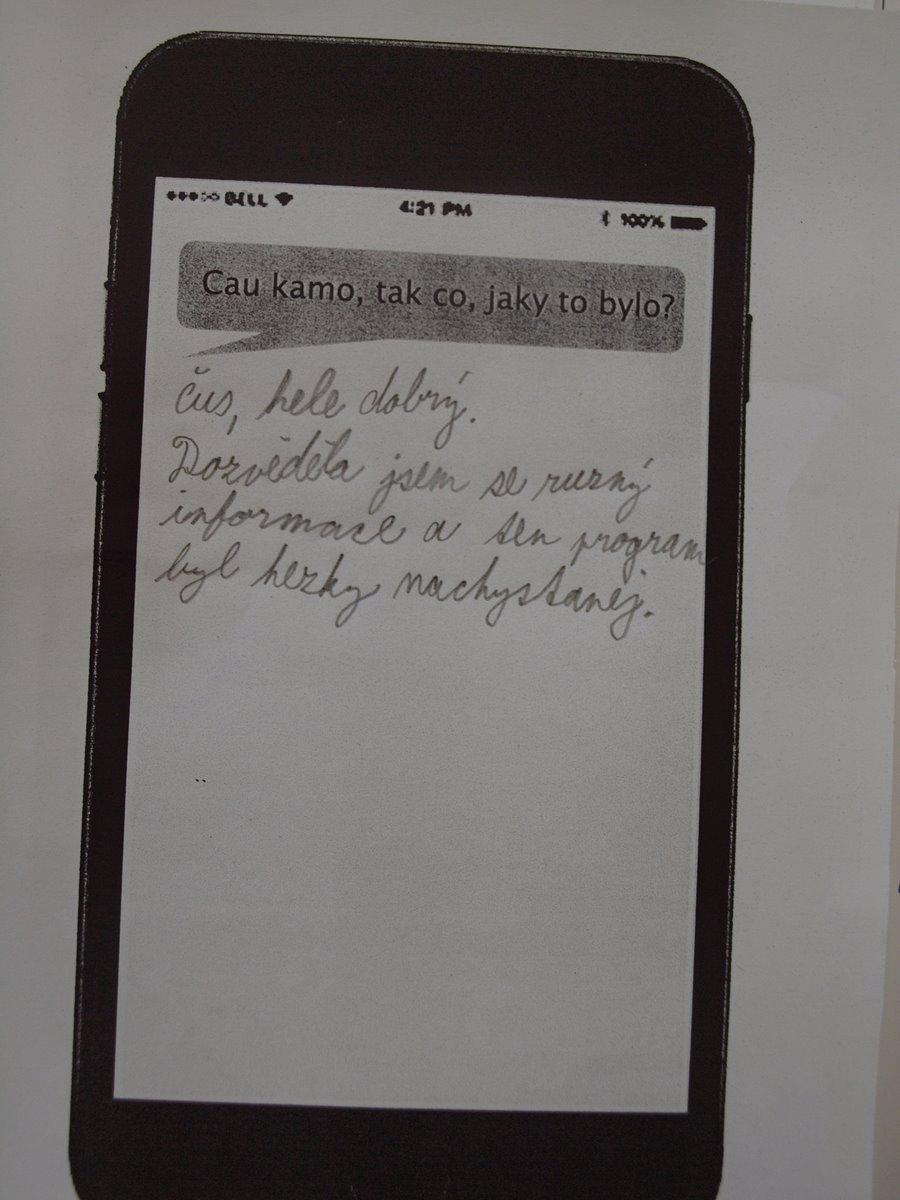 BELL 4:21 PM 100%
Cau kamo, tak co, jaky to bylo?
čus, hele dobrý.
Dozvěděla jsem se ruzný
informace a ten program
byl hezky nachystanéj.